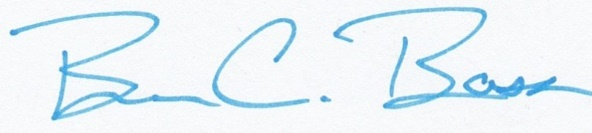 Ben C. Bass